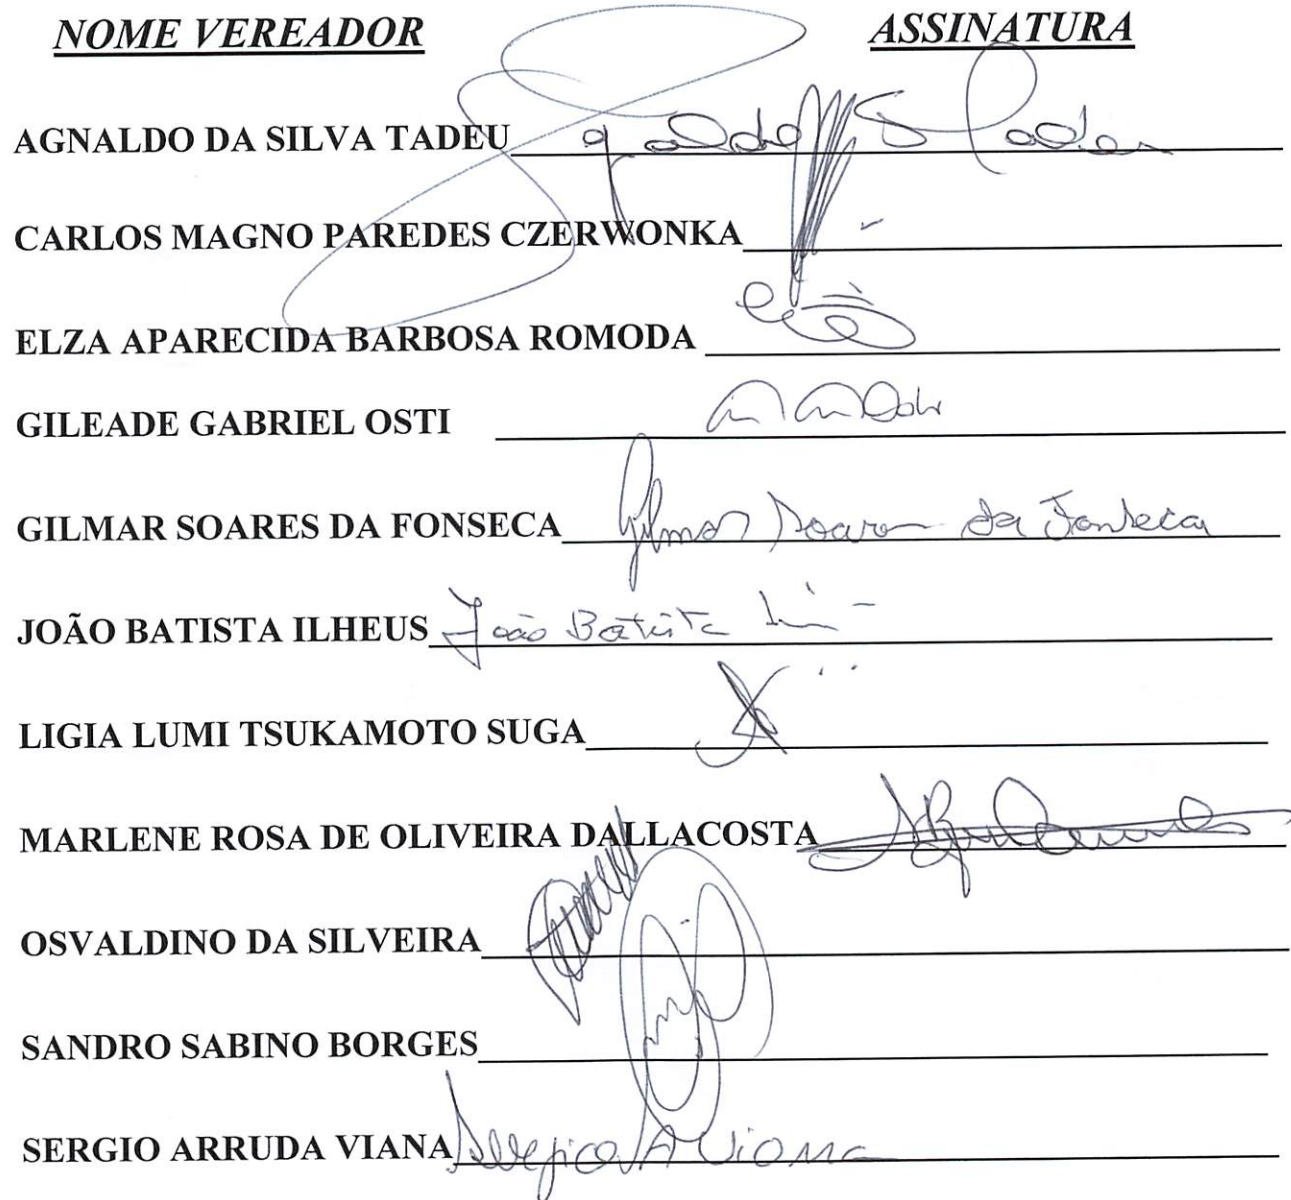 NOME VEREADOR ASSINATURA
AGNALDO DA SILVA TADEU
CARLOS MAGNO PAREDES CZERWONKA
ELZA APARECIDA BARBOSA ROMODA
GILEADE GABRIEL OSTI
GILMAR SOARES DA FONSECA Gilmar Soares da Fonseca
JOÃO BATISTA ILHEUS João Batista
LIGIA LUMI TSUKAMOTO SUGA
MARLENE ROSA DE OLIVEIRA DALLACOSTA
OSVALDINO DA SILVEIRA
SANDRO SABINO BORGES
SERGIO ARRUDA VIANA Sergio A Viana